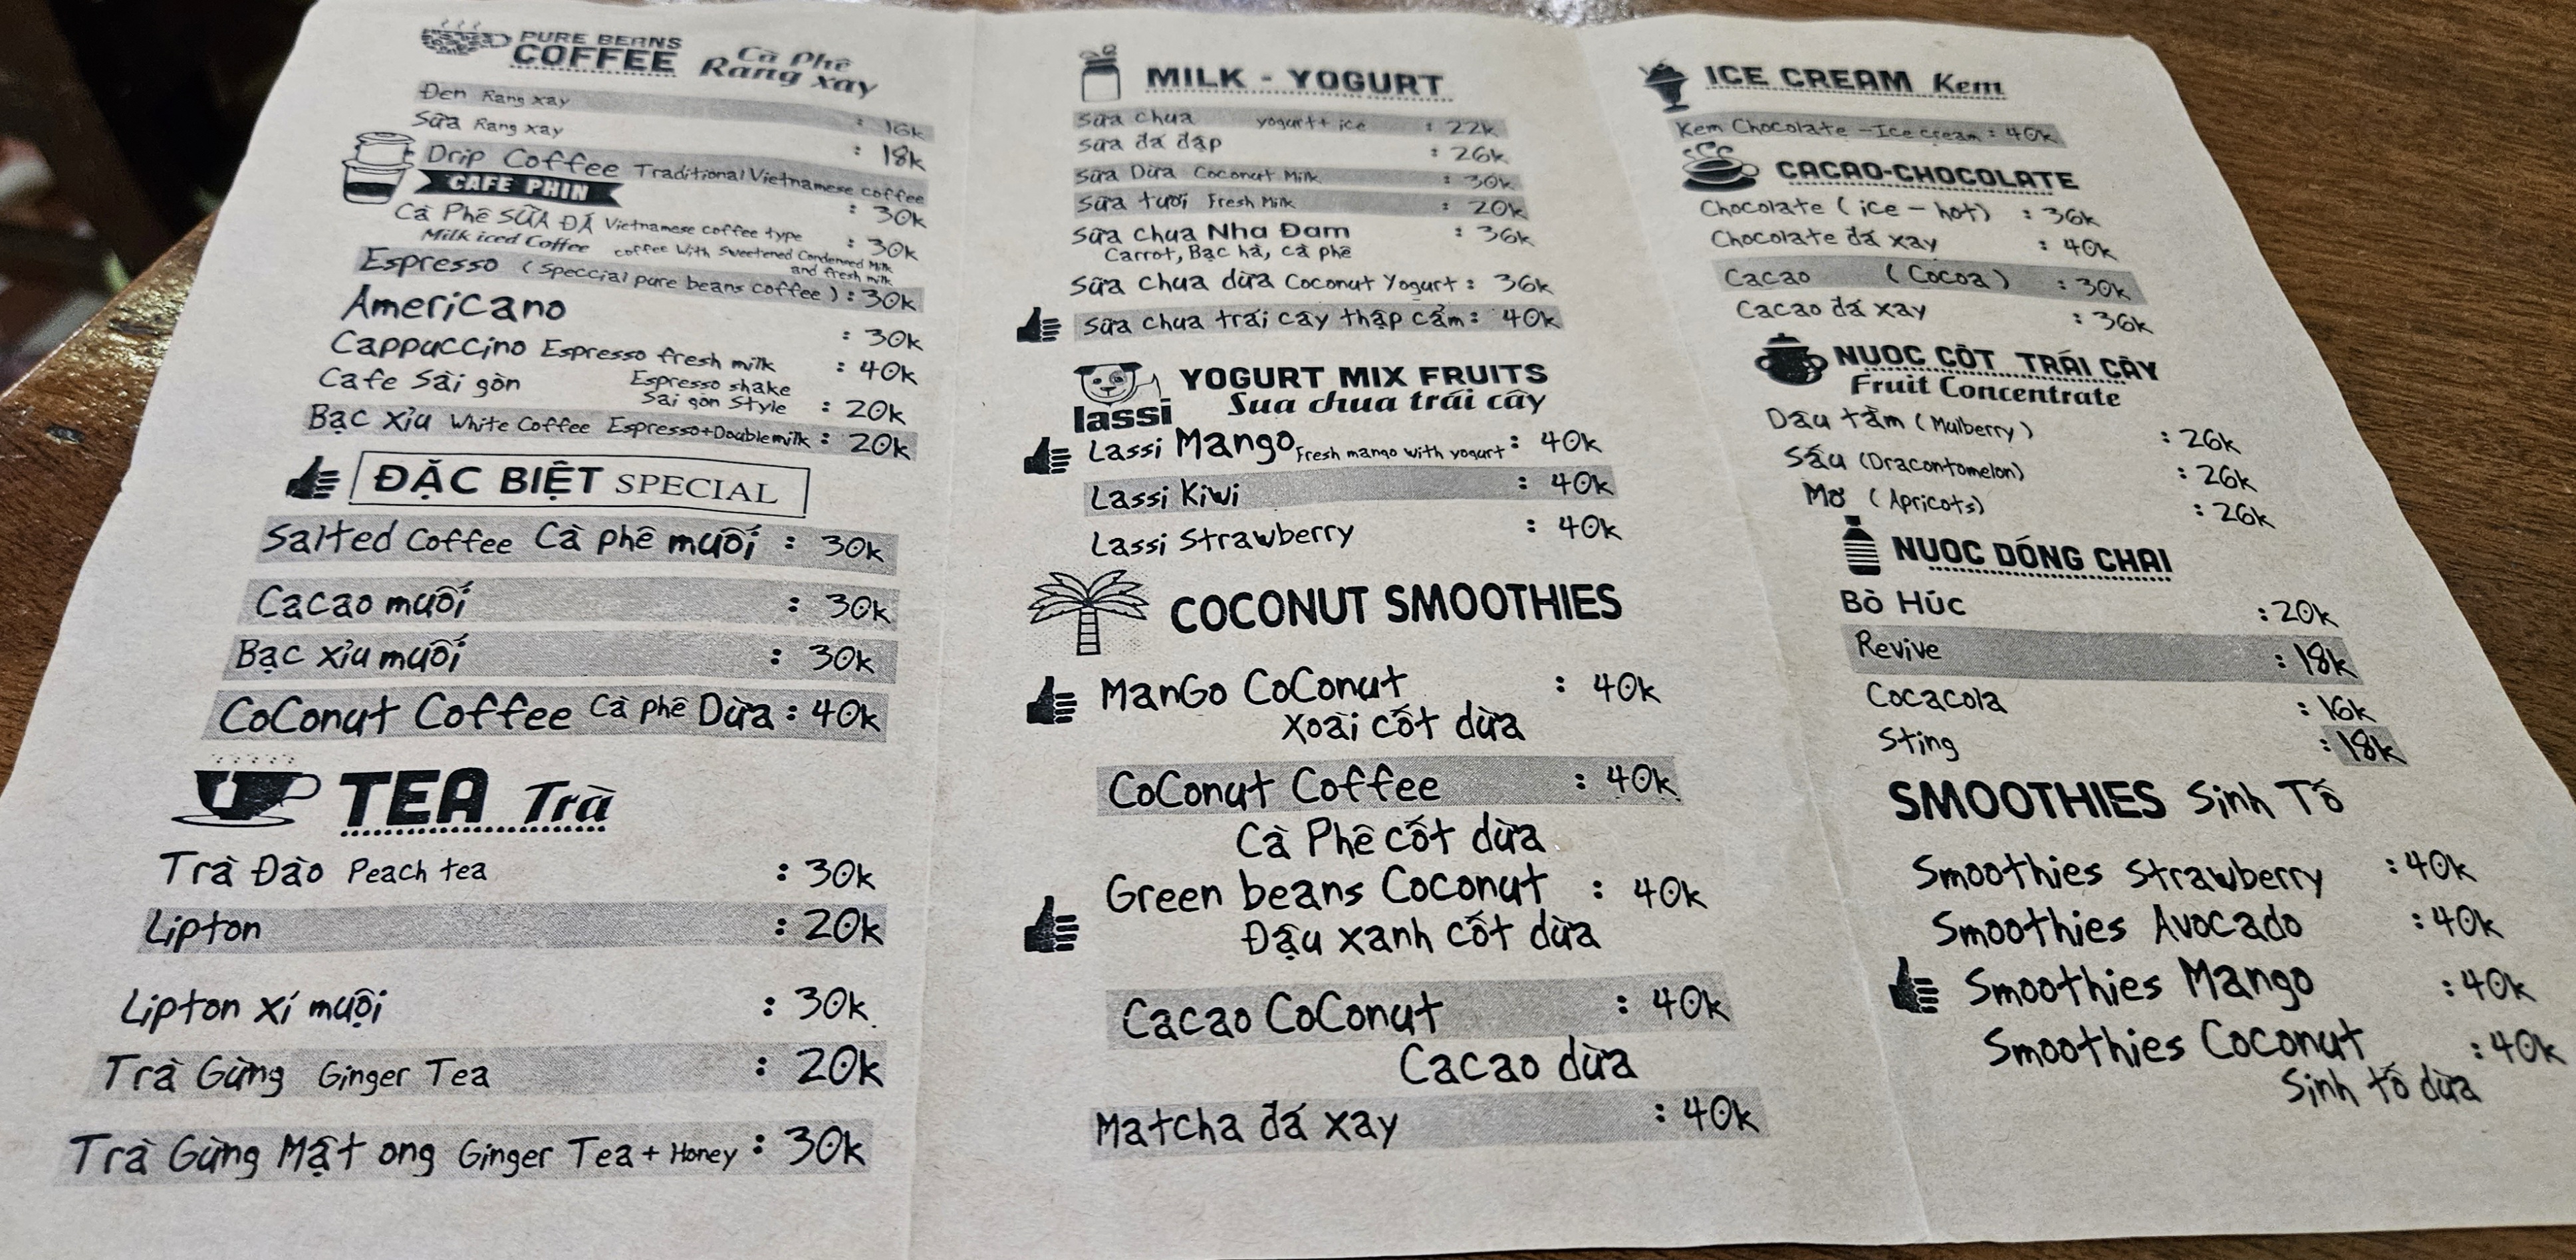 PURE BEANS
COFFEE Cà Phê Rang xay
Đen Rang xay : 16k
Sữa Rang xay : 18k
Drip Coffee Traditional Vietnamese coffee
CAFE PHIN : 30k
Cà Phê SỮA ĐÁ Vietnamese coffee type : 30k
Milk iced Coffee coffee With Sweetened Condensed Milk and fresh milk
Espresso (Speccial pure beans coffee) : 30k
Americano : 30k
Cappuccino Espresso fresh milk : 40k
Cafe Sài gòn Espresso shake Sai gon Style : 20k
Bạc xỉu White Coffee Espresso+Double milk : 20k
ĐẶC BIỆT SPECIAL
Salted Coffee Cà phê muối : 30k
Cacao muối : 30k
Bạc xỉu muối : 30k
CoConut Coffee Cà phê Dừa : 40k
TEA Trà
Trà Đào Peach tea : 30k
Lipton : 20k
Lipton xí muội : 30k
Trà Gừng Ginger Tea : 20k
Trà Gừng Mật ong Ginger Tea + Honey : 30k
MILK - YOGURT
Sữa chua yogurt+ ice : 22k
sữa đá đập : 26k
Sữa Dừa Coconut Milk : 30k
Sữa tươi Fresh Milk : 20k
Sữa chua Nha Đam : 36k
Carrot, Bạc hà, cà phê
Sữa chua dừa Coconut Yogurt : 36k
Sữa chua trái cây thập cẩm : 40k
lassi
YOGURT MIX FRUITS
Sua chua trái cây
Lassi Mango Fresh mango with yogurt : 40k
Lassi Kiwi : 40k
Lassi Strawberry : 40k
COCONUT SMOOTHIES
ManGo CoConut : 40k
Xoài cốt dừa
CoConut Coffee : 40k
Cà Phê cốt dừa
Green beans Coconut : 40k
Đậu xanh cốt dừa
Cacao CoConut : 40k
Cacao dừa
Matcha đá xay : 40k
ICE CREAM Kem
Kem Chocolate - Ice cream : 40k
CACAO-CHOCOLATE
Chocolate (ice - hot) : 36k
Chocolate đá xay : 40k
Cacao (Cocoa) : 30k
Cacao đá xay : 36k
NUOC CÔT TRÁI CÂY
Fruit Concentrate
Dâu tằm (Mulberry) : 26k
Sấu (Dracontomelon) : 26k
Mơ (Apricots) : 26k
NUOC DÓNG CHAI
Bò Húc : 20k
Revive : 18k
Cocacola : 16k
Sting : 18k
SMOOTHIES Sinh Tố
Smoothies Strawberry : 40k
Smoothies Avocado : 40k
Smoothies Mango : 40k
Smoothies Coconut : 40k
Sinh tố dừa